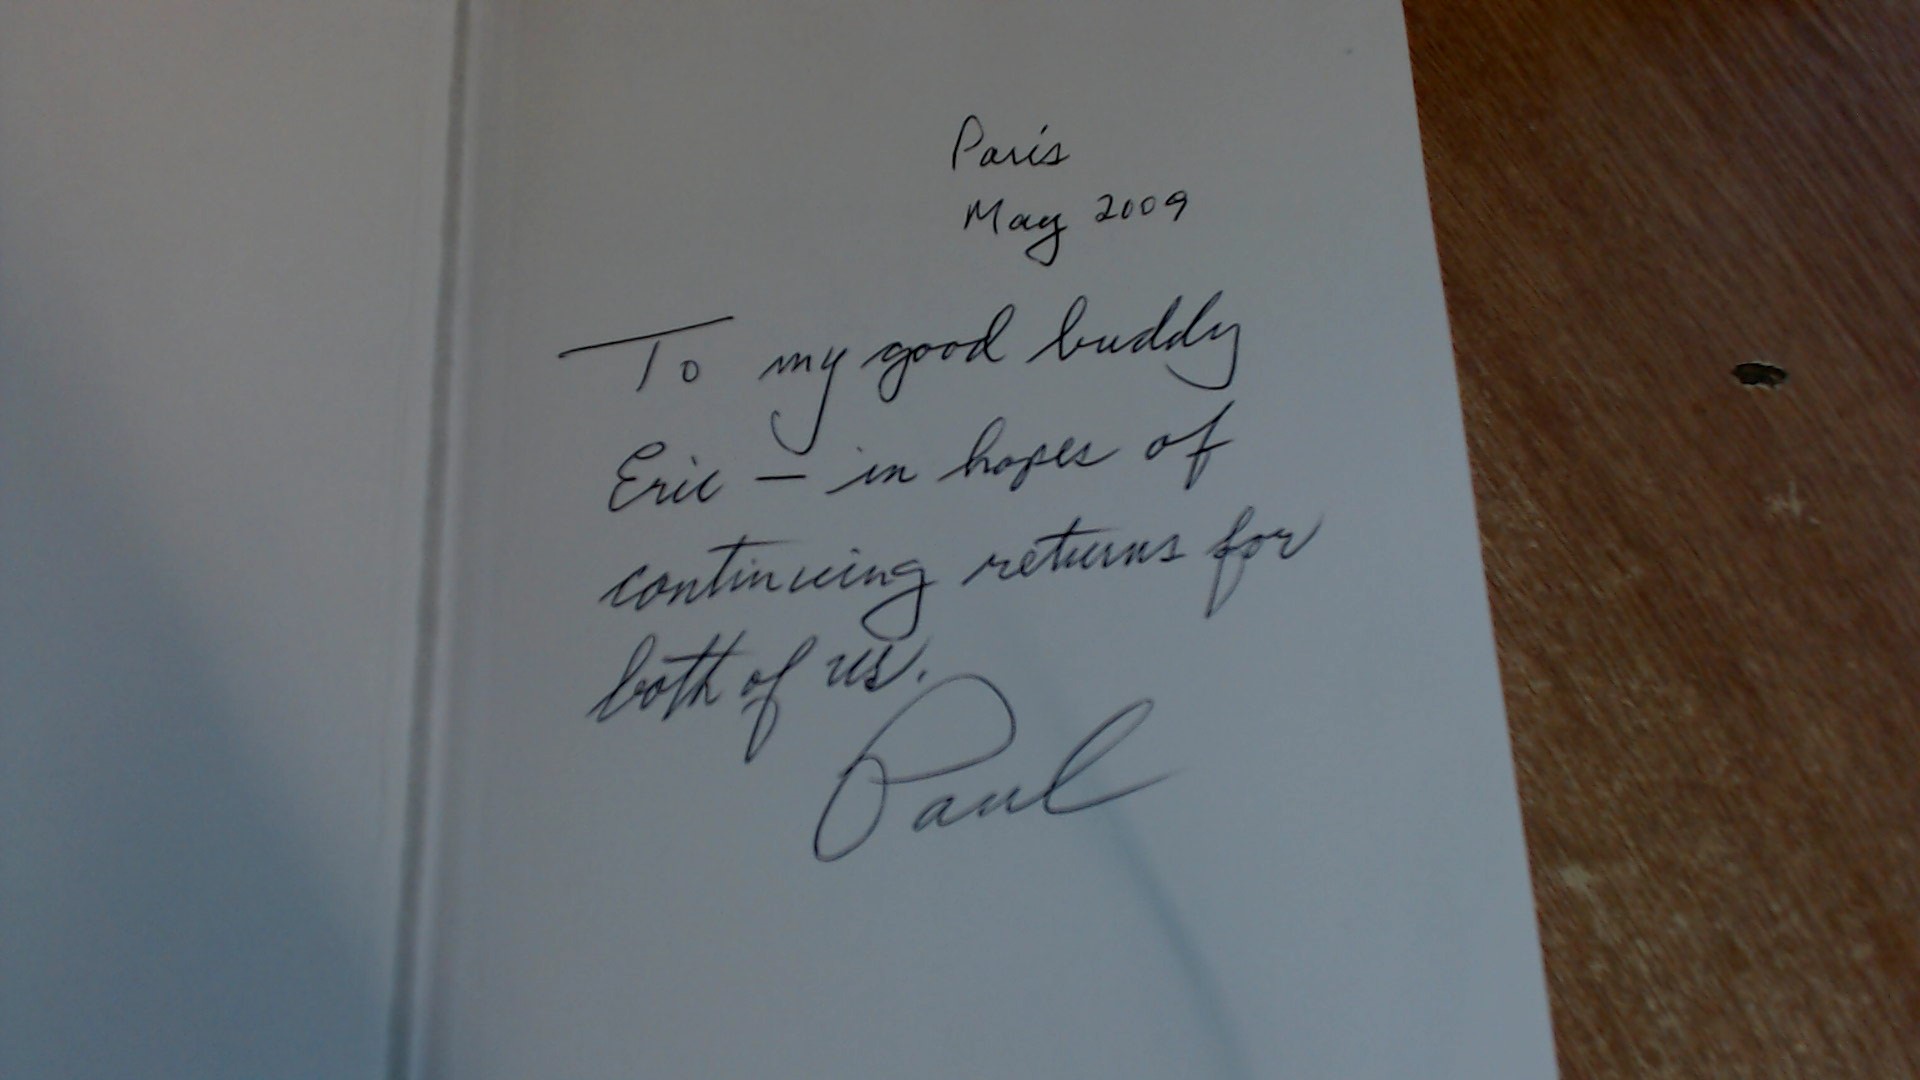 Paris
May 2009
To my good buddy
Eric – in hopes of
continuing returns for
both of us.
Paul